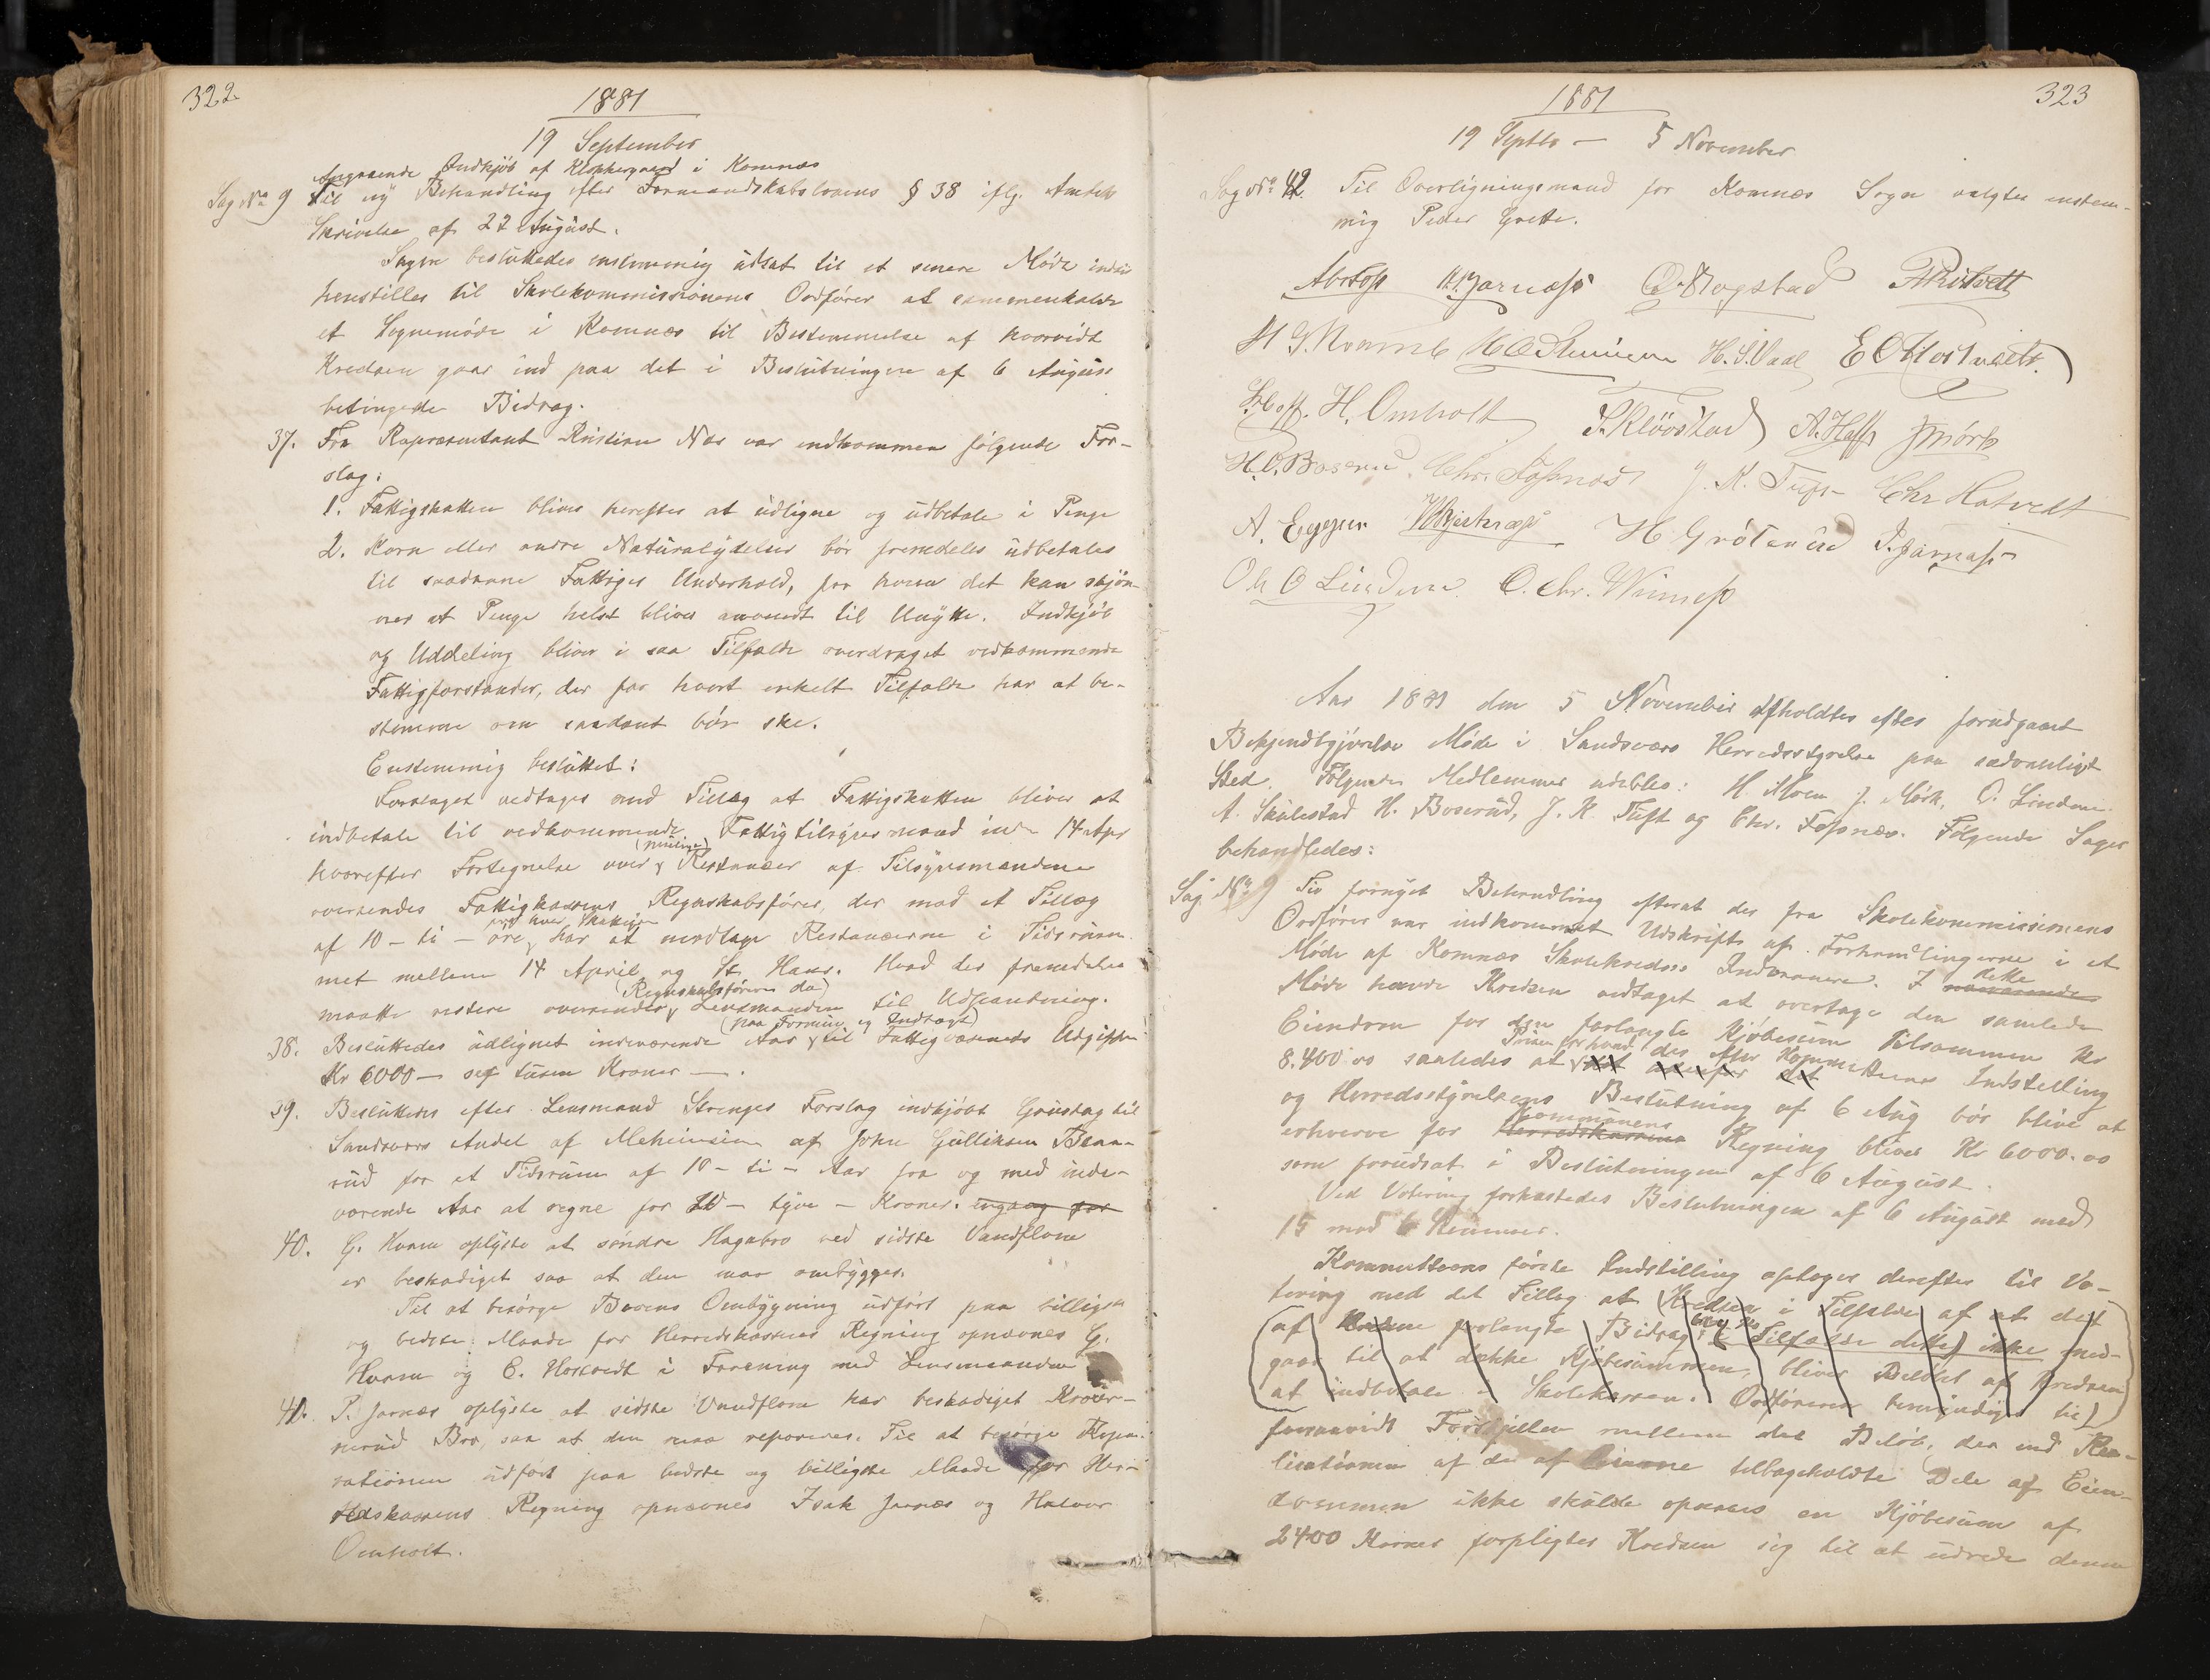 322
1881
19 September
Angaaende Indkjöb af Klokkergaard i Komnæs
Sag No 9 Til ny Behandling efter Formandskabslovens § 38 iflg. Amtets
Skrivelse af 22 August.
Sagen besluttedes enstemmig udsat til et senere Møde
henstilles til Skolekommissionens Ordfører at sammenkalde
et Sognemøde i Komnæs til Bestemmelse af hvorvidt
Kredsen gaar ind paa det i Beslutningen af 6 August
betingede Bidrag.
37. Fra Repræsentant Kristian Næs var indkommen følgende For-
slag:
1. Fattigskatten bliver herefter at udligne og udbetale i Penge
2. Korn eller andre Naturalydelser bör fremdeles udbetales
til saadanne Fattiges Underhold, for hvem det kan skjön-
nes at Penge helst bliver anvendt til Unytte. Indkjöb
og Uddeling bliver i saa Tilfælde overdraget vedkommende
Fattigforstander, der for hvert enkelt Tilfælde har at be-
stemme om saadant bör ske.
Enstemmig besluttet:
Forslaget vedtages med Tillæg at Fattigskatten bliver at
indbetale til vedkommende Fattigtilsynsmand inden 14 Apr
hvorefter Fortegnelse over Restancer af Tilsynsmændene
oversendes Fattigkassens Regnskabsförer, der mod et Tillæg
af 10 - ti - öre har at modtage Restancerne i Tidsrum-
met mellem 14 April og St. Hans. Hvad der fremdeles
(Regnskabsføreren da)
maatte restere oversender Lensmanden til Udpantning.
(paa Formue og Indtægt)
38. Besluttedes udlignet indeværende Aar til Fattigvæsenets Udgifter
Kr 6000 - sex tusen Kroner - .
39. Besluttedes efter Lensmand Strenges Forslag indkjöbt Grustag til
Sandsværs Andel af Meheimsveien af John Gulliksen Bran-
rud for et Tidsrum af 10 - ti - Aar fra og med inde-
værende Aar at regne for 20 - tyve - Kroner. engang for
40. G. Hvam oplyste at søndre Hagabro ved sidste Vandflom
er beskadiget saa at den maa ombygges.
Til at besørge Broens Ombygning udført paa billigste
og bedste Maade for Herredskassens Regning opnævnes G.
Hvam og E. Hostvedt i Forening med Lensmanden
41. P. Jarnæs oplyste at sidste Vandflom har beskadiget
Bro, saa at den maa repareres. Til at besørge Repa-
rationen udført paa bedste og billigste Maade for Her-
redskassens Regning opnævnes Isak Jarnæs og Halvor
Omholt.
323
1881
19 Septbr - 5 November
Sag No 42. Til Overligningsmand for Komnæs Sogn valgtes enstem-
mig Peder Grette.
H. S. Vaal
H. Omholt J. Klövstad A. Hass J Mörk
H. O. Boserud. Chr. Fosnæs J. K. Tuft Chr Hatvedt
A. Eggen H Gröterud P. Jarnæs
Ole O Lindem. O. Chr. Winnes
Aar 1881 den 5 November afholdtes efter forudgaaet
Bekjendtgjørelse Møde i Sandsværs Herredsstyrelse paa sædvanligt
Sted. Følgende Medlemmer udeblev: H. Moen J. Mörk, O. Lindem
A. Skulestad H. Boserud, J. K. Tuft og Chr. Fosnæs. Følgende Sager
behandledes:
Sag No 9 Til fornyet Behandling efterat der fra Skolekommissionens
Ordfører var indkommet Udskrift af Forhandlingerne i et
Møde af Komnæs Skolekredses Indvaanere. I dette
Møde havde Kredsen vedtaget at overtage den samlede
Eiendom for den forlangte Kjöbesum tilsammen Kr
Prisen for hvad
8.400.00 saaledes at det der efter Kommitteens Indstilling
og Herredsstyrelsens Beslutning af 6 Aug bör blive at
Kommunens
erhverve for Herredskassens Regning bliver Kr 6000.00
som forudsat i Beslutningen af 6 August.
Ved Votering forkastedes Beslutningen af 6 August med
15 mod 6 Stemmer.
Kommitteens første Indstilling optages derefter til Vo-
tering med det Tillæg at Kredsen i Tilfælde af at det
af forlangte Bidrag Tilfælde dette) ikke med-
gaar til at dække Kjöbesummen, bliver Beløbet af Kredsen
at indbetale i Skolekassen. Ordføreren bemyndiges til)
forsaavidt Forskjellen mellem det Beløb, der ved Rea-
lisationen af de af tilbageholdte Dele af Eien-
dommen ikke skulde opnaaes en Kjöbesum af
2400 Kroner forpligter Kredsen sig til at udrede denne